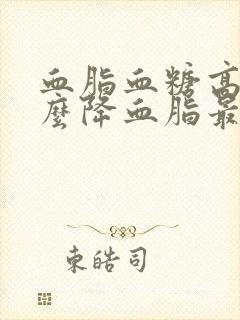 血脂血糖高
麼降血脂最
東皓司